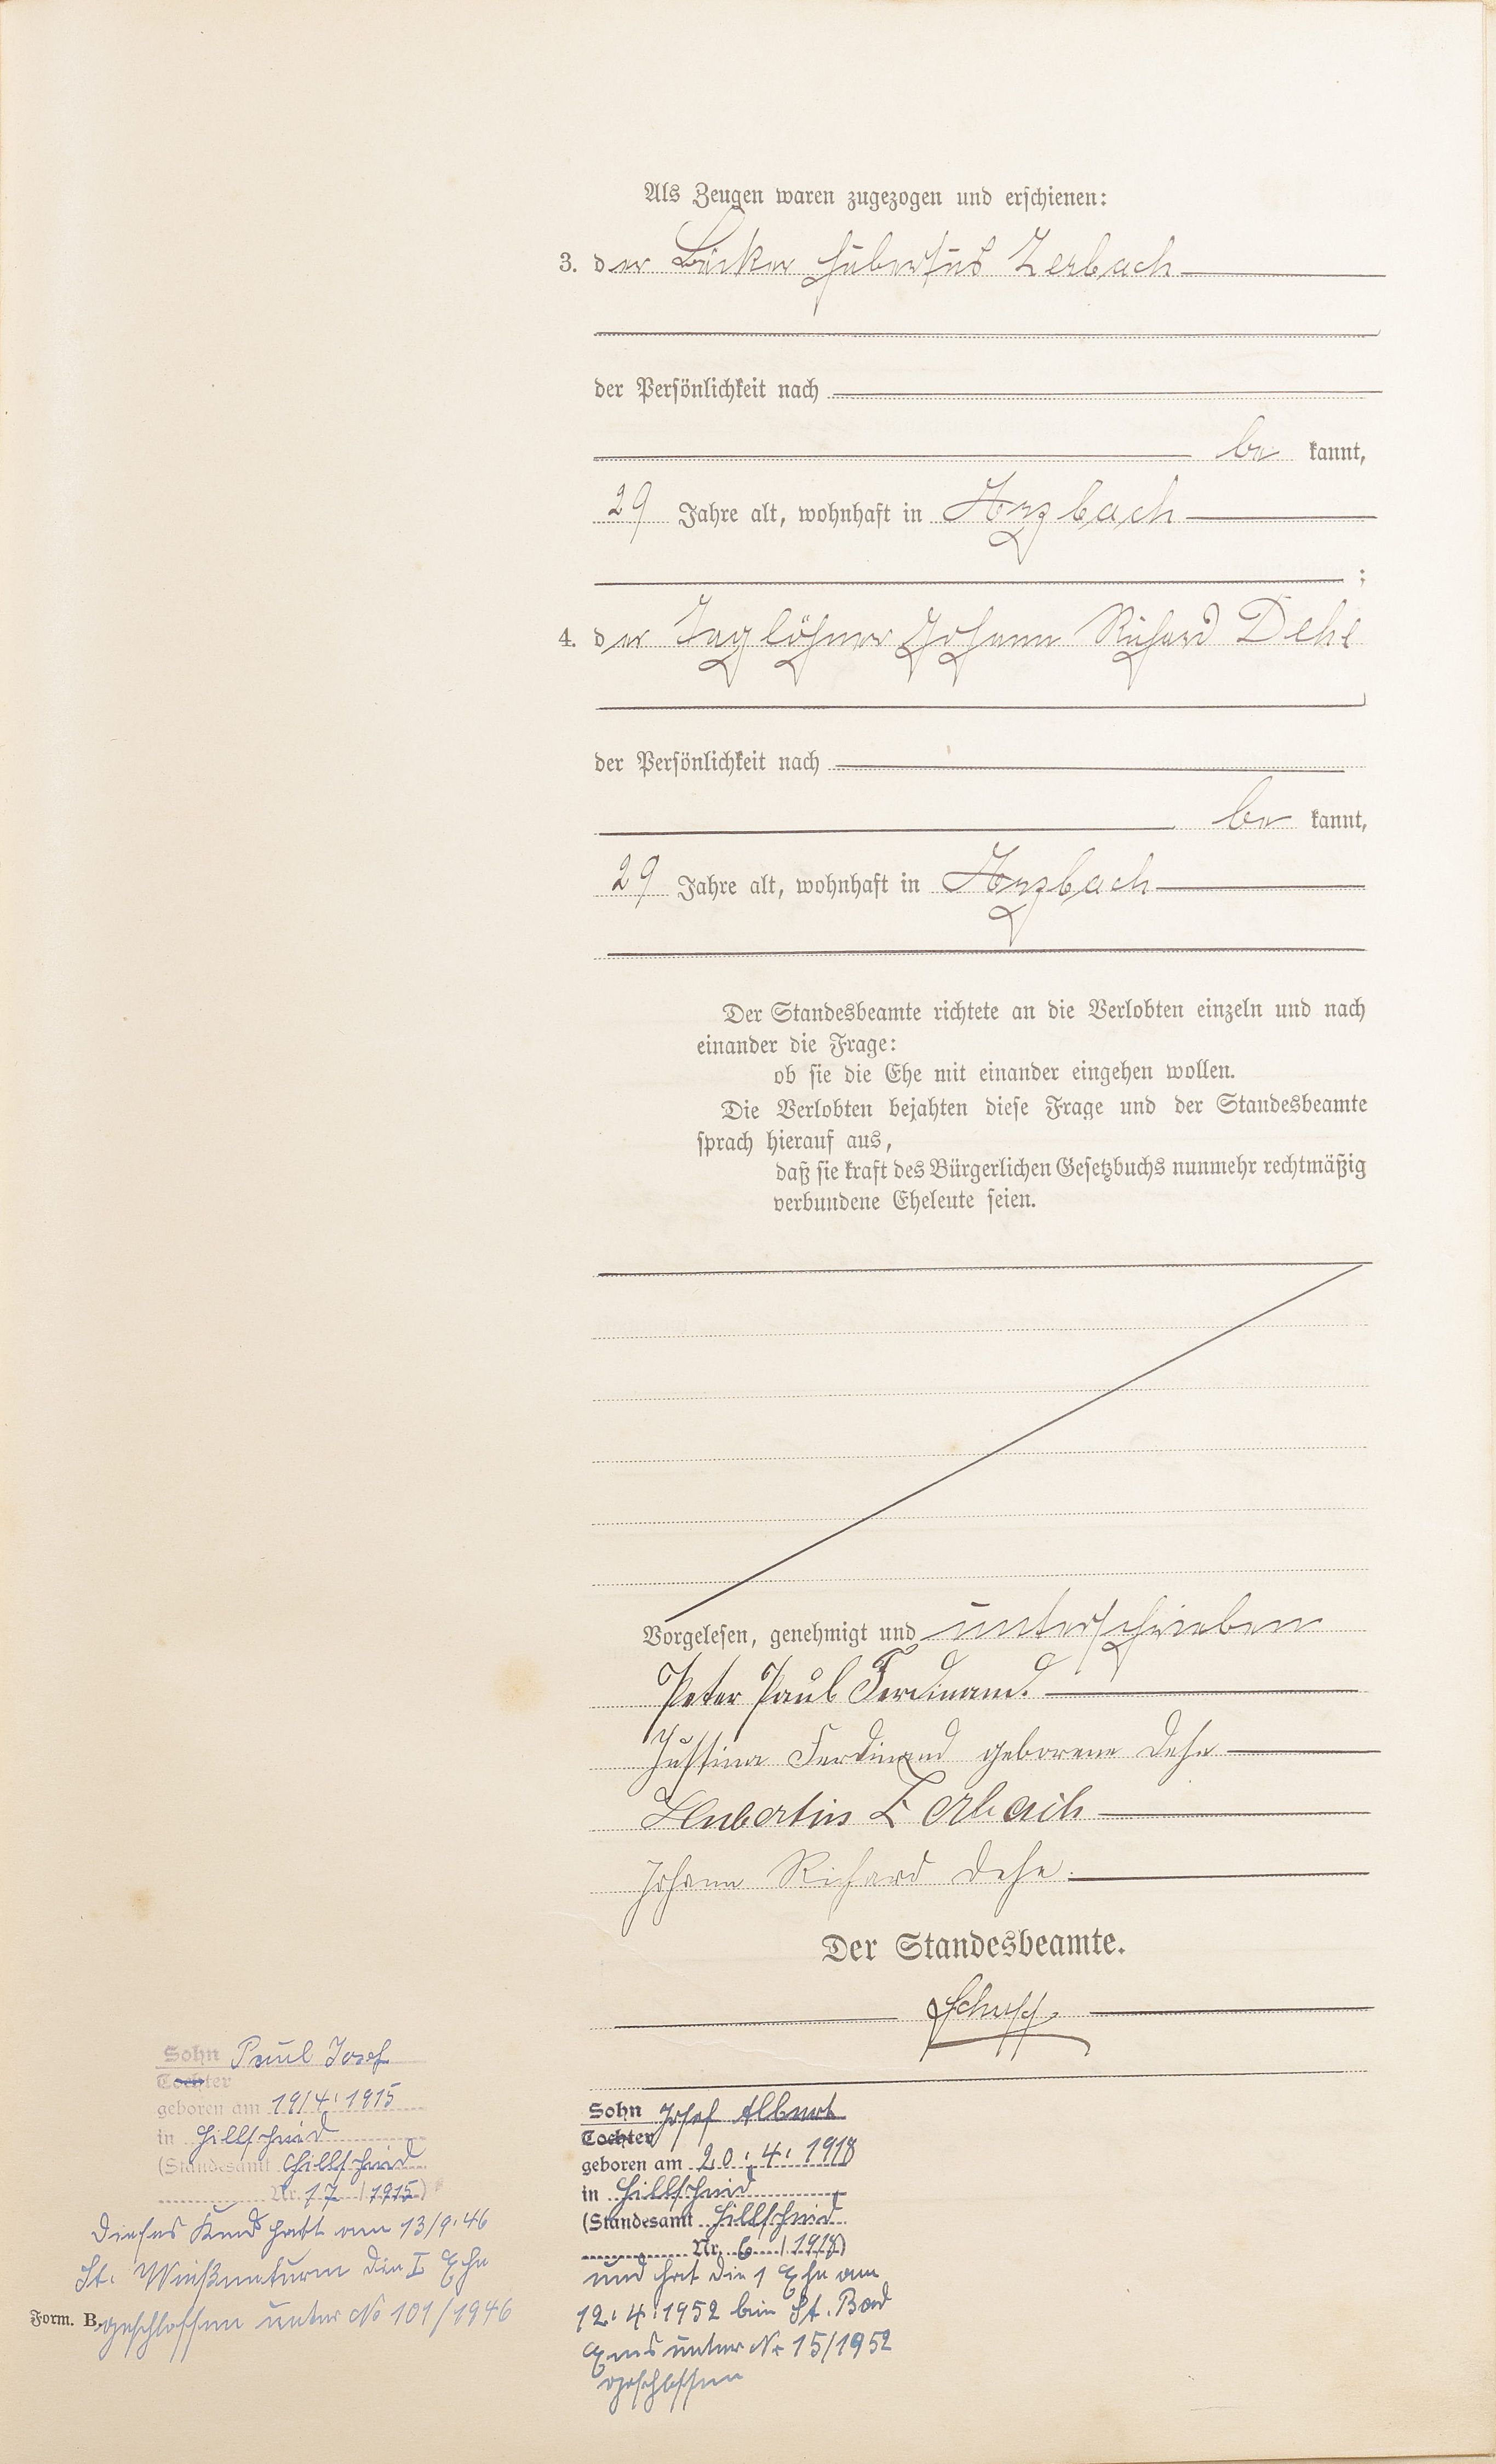 Als Zeugen waren zugezogen und erschienen:
3. der Bäcker Hubertus Zerbach
der Persönlichkeit nach
be kannt,
29 Jahre alt, wohnhaft in Arzbach
;
4. der Taglöhner Johann Richard Dehe
der Persönlichkeit nach
be kannt,
29 Jahre alt, wohnhaft in Arzbach
Der Standesbeamte richtete an die Verlobten einzeln und nach
einander die Frage:
ob sie die Ehe mit einander eingehen wollen.
Die Verlobten bejahten diese Frage und der Standesbeamte
sprach hierauf aus,
daß sie kraft des Bürgerlichen Gesetzbuchs nunmehr rechtmäßig
verbundene Eheleute seien.
Vorgelesen, genehmigt und unterschrieben
Peter Paul Ferdinand.
Justina Ferdinand geborene Dehe
Hubertus Zerbach
Johann Richard Dehe.
Der Standesbeamte.
Sohn Paul Josef
Tochter
geboren am 19/4.1915
in Hillscheid
(Standesamt Hillscheid
Nr. 17 / 1915)
Dieses Kind hatt am 13/9.46
St. Weißenturm die I Ehe
geschlossen unter No 101/1946
Form. B.
Sohn Josef Albert
Tochter
geboren am 20.4.1918
in Hillscheid
(Standesamt Hillscheid
Nr. 6 / 1918)
und hat die 1 Ehe am
12.4.1952 beim St. Bad
Ems unter Nr 15/1952
geschlossen